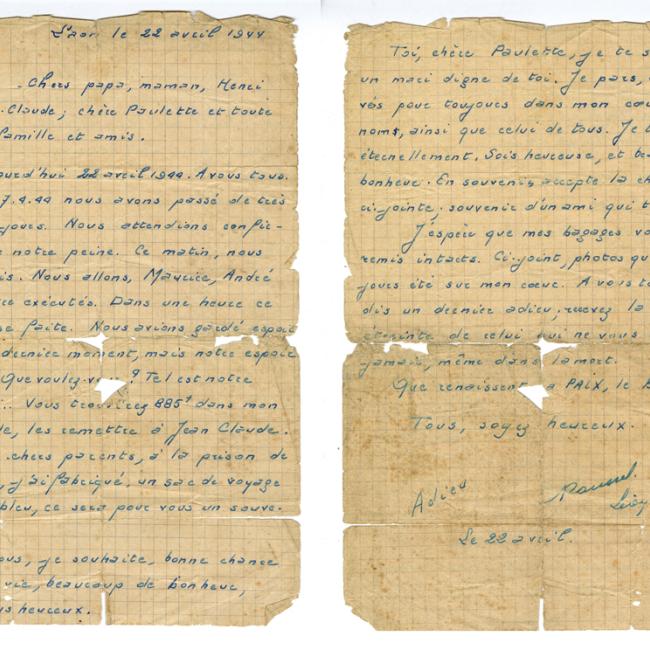 Laon le 22 avril 1944
Chers papa, maman, Henri
Claude; chère Paulette et toute
famille et amis.
ourd'hui 22 avril 1944. A vous tous.
7.4.44 nous avons passé de très
jours. Nous attendions confir-
notre peine. Ce matin, nous
is. Nous allons, Maurice, André
re exécutés. Dans une heure ce
se faite. Nous avions gardé espoir
dernier moment, mais notre espoir
Que voulez-vous? Tel est notre
... Vous trouverez 885f dans mon
le, les remettre à Jean Claude.
chers parents, à la prison de
, j'ai fabriqué, un sac de voyage
bleu, ce sera pour vous un souve.
ous, je souhaite, bonne chance
vie, beaucoup de bonheur,
us heureux.
Toi, chère Paulette, je te s
un mari digne de toi. Je pars,
vés pour toujours dans mon cœu
noms, ainsi que celui de tous. Je t
éternellement. Sois heureuse, et be
bonheur. En souvenir, accepte la ch
ci-jointe; souvenir d'un ami qui t
J'espère que mes bagages vo
remis intacts. Ci-joint, photos qu
jours été sur mon cœur. A vous to
dis un dernier adieu, recevez la
étreinte de celui qui ne vous
jamais, même dans la mort.
Que renaissent la PAIX, le b
Tous, soyez heureux.
Adieu
Le 22 avril.